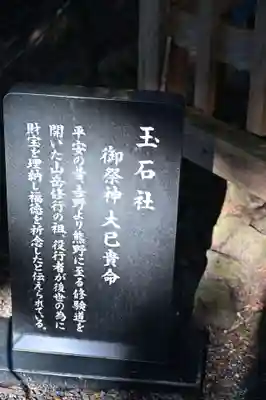 玉石社
御祭神 大己貴命
平安の昔、吉野より熊野に至る修験道を
開いた山岳修行の祖、役行者が後世の為に
財宝を埋納し福徳を祈念したと伝えられている。